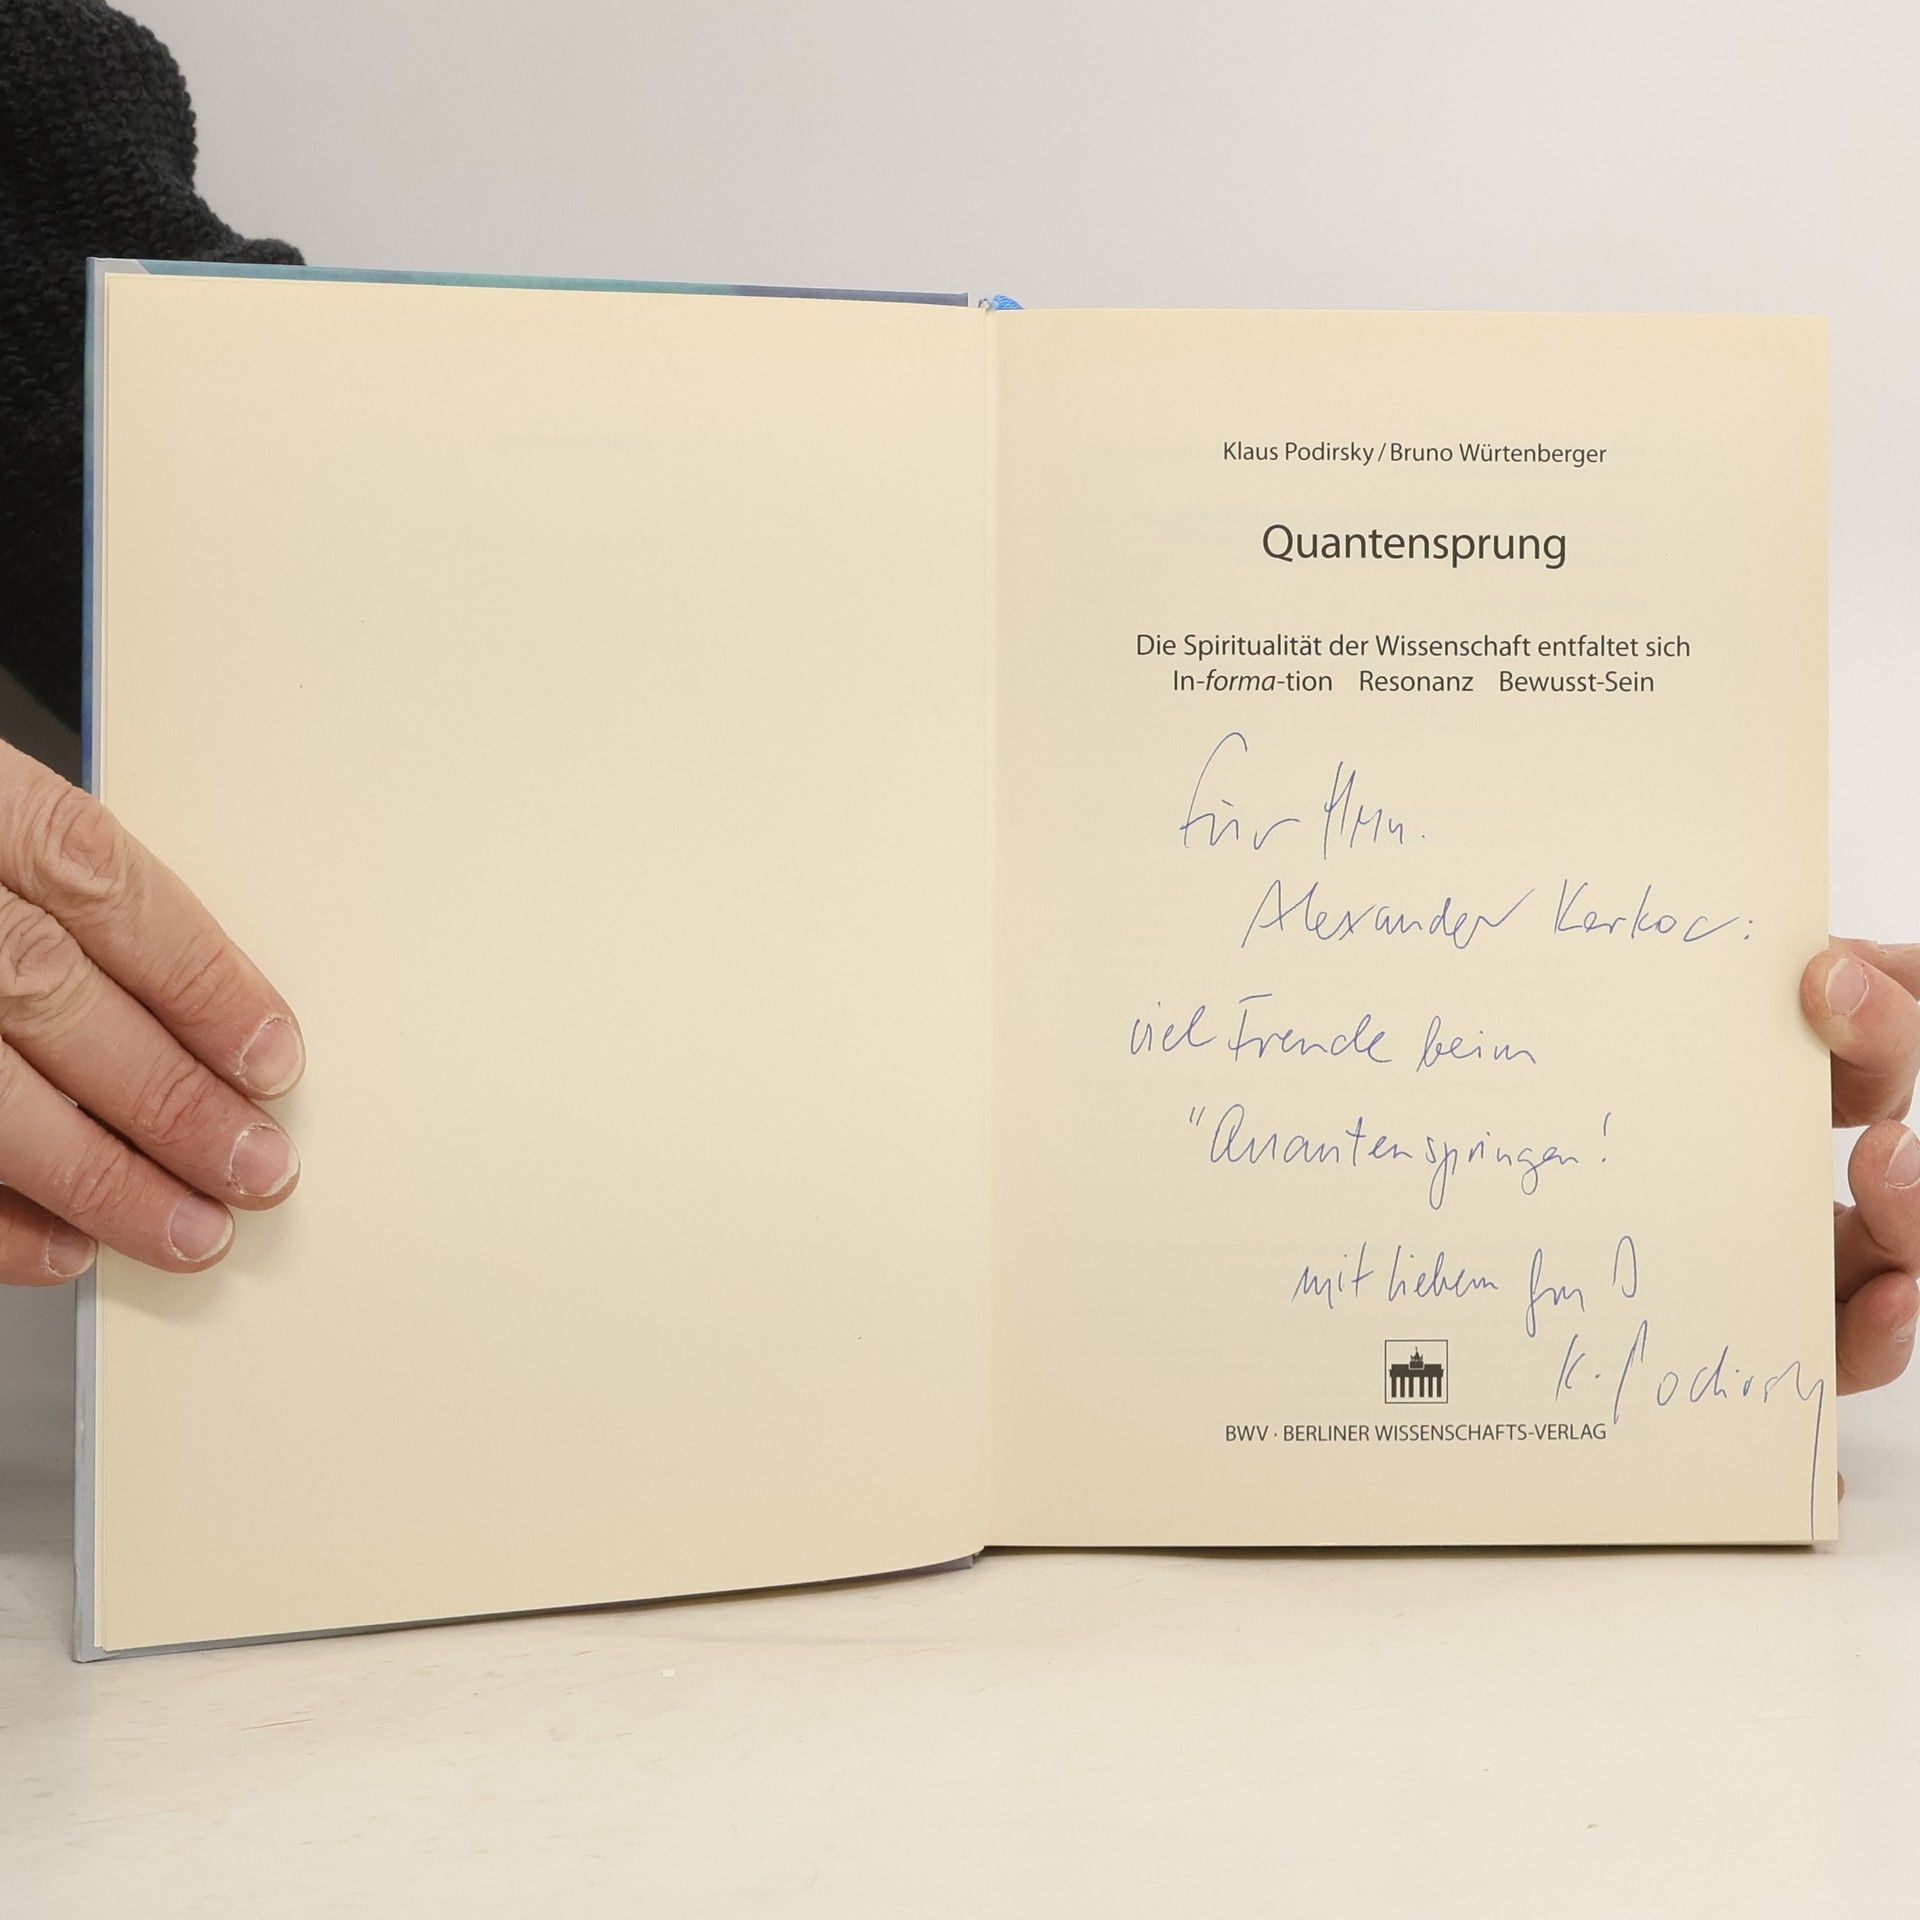 Klaus Podirsky / Bruno Würtenberger
Quantensprung
Die Spiritualität der Wissenschaft entfaltet sich
In-forma-tion Resonanz Bewusst-Sein
Für Hrn.
Alexander Kerkoc:
viel Freude beim
"Quantenspringen!
mit liebem
K. Podirsky
BWV · BERLINER WISSENSCHAFTS-VERLAG